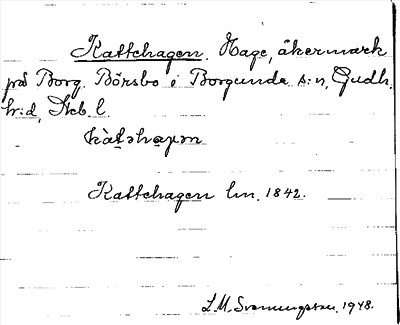 Kattehagen. Hage, åkermark
på Borg. Börsbo i Borgunda s:n, Gudh.
h:d, Skb. l.
Kattehagen lm. 1842.
L.M. Svanungsson. 1948.